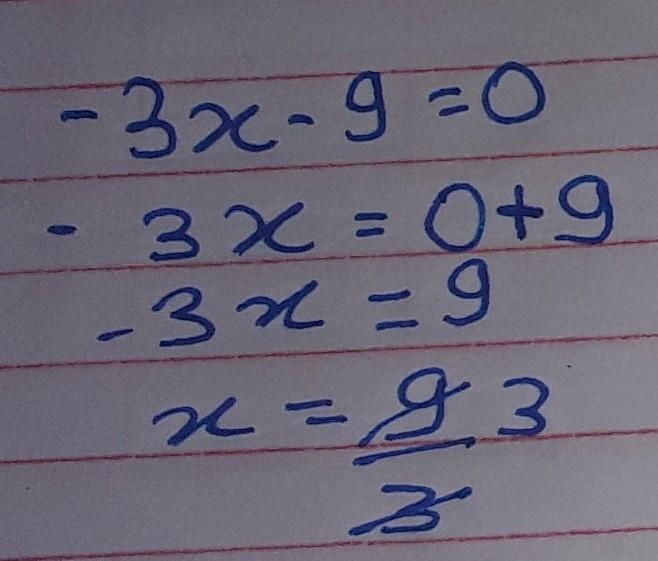 -3x - 9 = 0
- 3x = 0 + 9
-3x = 9
x = 9/3 3